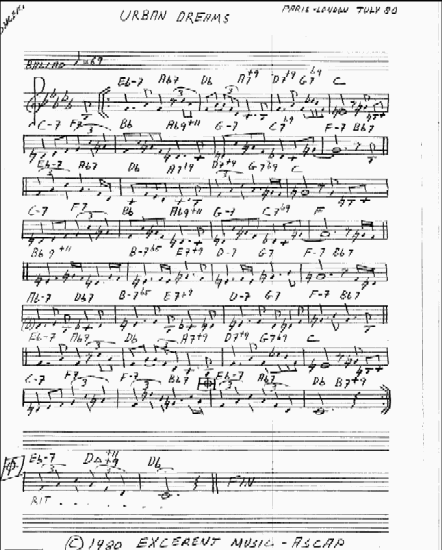 URBAN DREAMS
PARIS-LONDON JULY 80
BALLAD
Eb-7 Ab7 Db A7+9 D7+9 G7b9 C
C-7 F7 Bb Ab9+11 G-7 C7b9 F-7 Bb7
Eb-7 Ab7 Db A7+9 D7+9 G7b9 C
C-7 F7 Bb Ab9+11 G-7 C7b9 F
Bb9+11 B-7b5 E7+9 D-7 G7 F-7 Bb7
Ab-7 Db7 B-7b5 E7+9 D-7 G7 F-7 Bb7
Eb-7 Ab9 Db A7+9 D7+9 G7b9 C
C-7 F7 F-7 Bb7 Eb-7 Ab7 Db B7+9
Eb-7 Db
FIN
RIT . . . . . .
© 1980 EXCERENT MUSIC - ASCAP